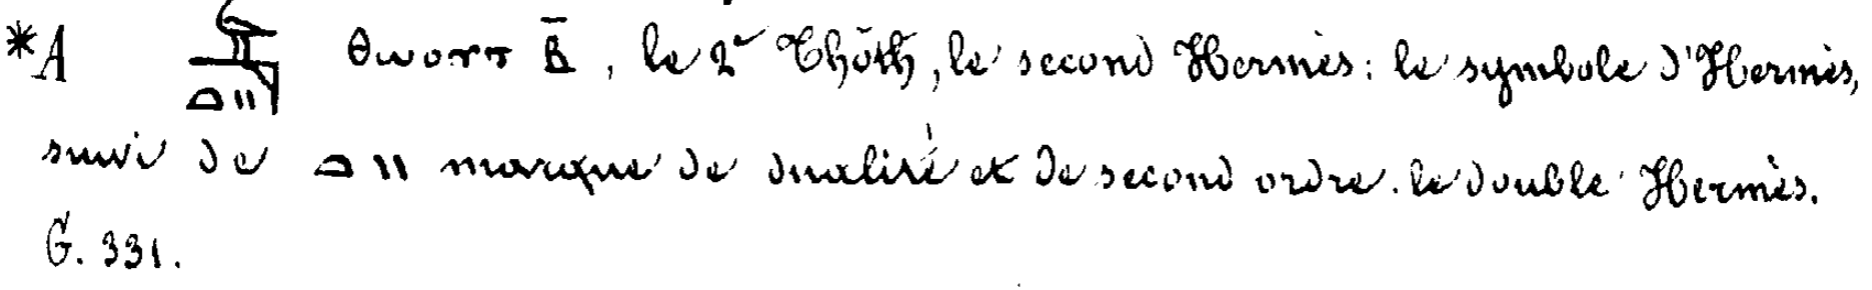 *A 𓅝𓏏𓏭 ⲑⲱⲟⲩⲧ ⲃ̄, le 2e Thôth, le second Hermès: le symbole d'Hermès,
suivi de 𓏏𓏭 marque de dualité et de second ordre. le double Hermès.
G. 331.